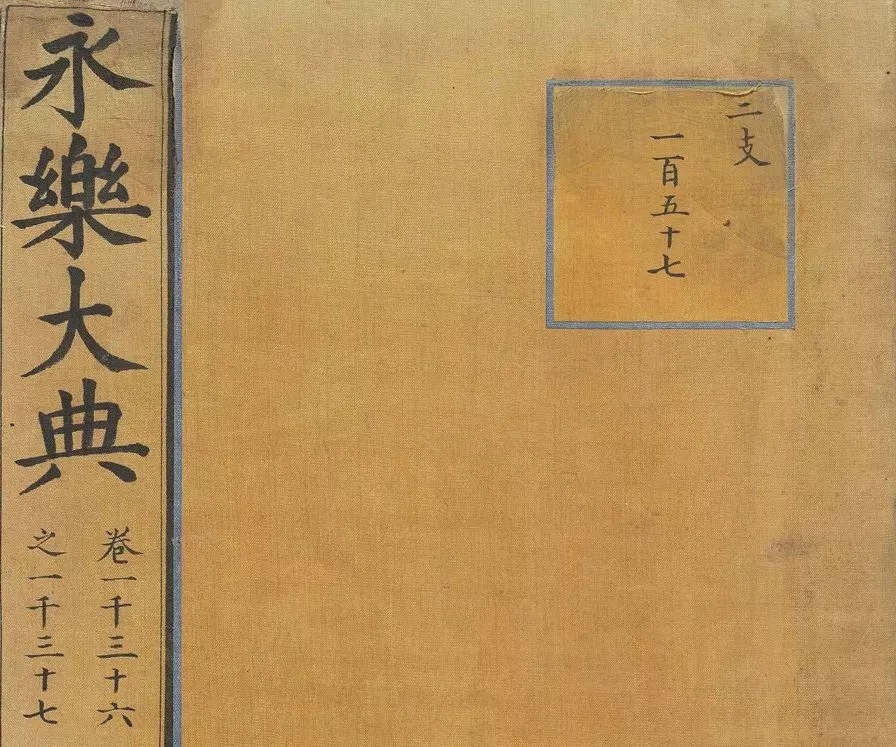 永樂大典
卷一千三十六
之一千三十七
二支
一百五十七